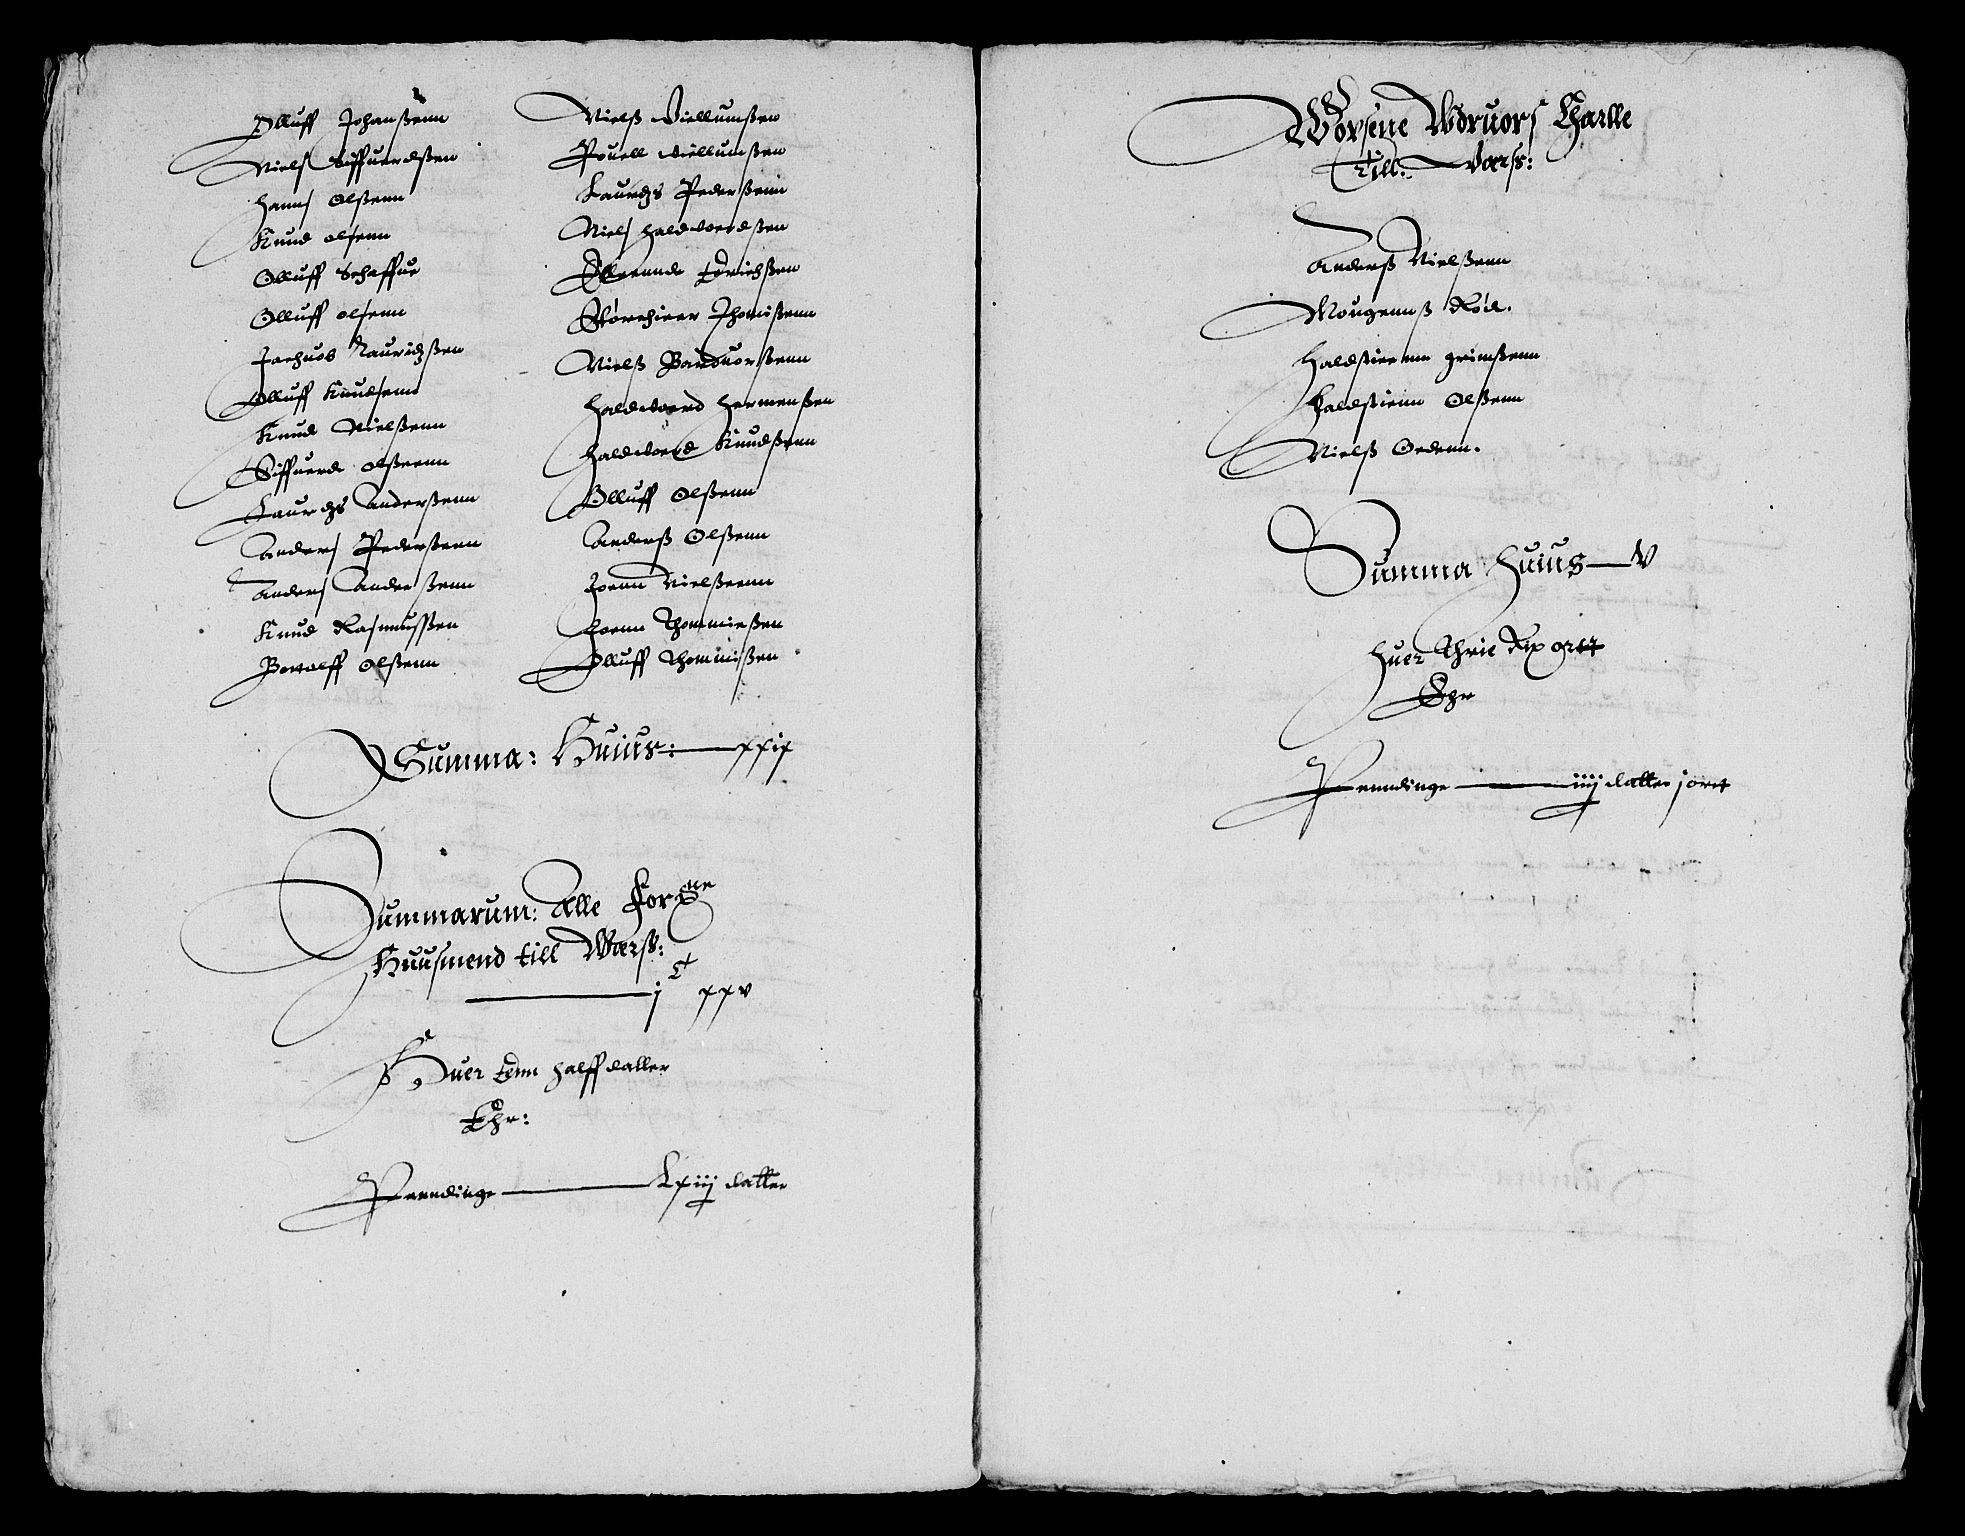 Olluff Johanßenn
Niels Siffuerdßen
Hanns Olßenn
Knud olsenn
Olluff Schaffue
Olluff olsenn
Jachuob Lauridzßen
Olluff Knudsenn
Knud Nielßenn
Siffuerd olßeenn
Laurdzs Anderßenn
Anders Pederßenn
Anders Anderßenn
Knud Rasmußßen
Olßenn
Nielß Villumßen
Pouell villumßen
Laurdzs Pederßenn
Niels Haldvordßen
Erichßen
Thomißenn
Nielß Barduorßenn
Haldvord Hermenßen
Haldvord Knudßenn
Olluff Olßenn
Anderß Olßenn
Joenn Nielßeenn
Joenn Thommießen
Olluff Thommißen
Summa: Huius: xxix
Summarum: Alle For^{ne}
Huusmend till Wærß:
j^C xxv
Huer Enn halff daller
Ehr:
Penndinge Lxiij daller
Woxsene Wdruors Charlle
Till: Værß:
Anderß Nielßenn
Mougennß Rød.
Haldstieenn grimßenn
Haldstienn Olßenn
Nielß Oedenn.
Summa Huius v
Huer Thrie Rix ortt
Ehr
Penndinge iiij daller j ort